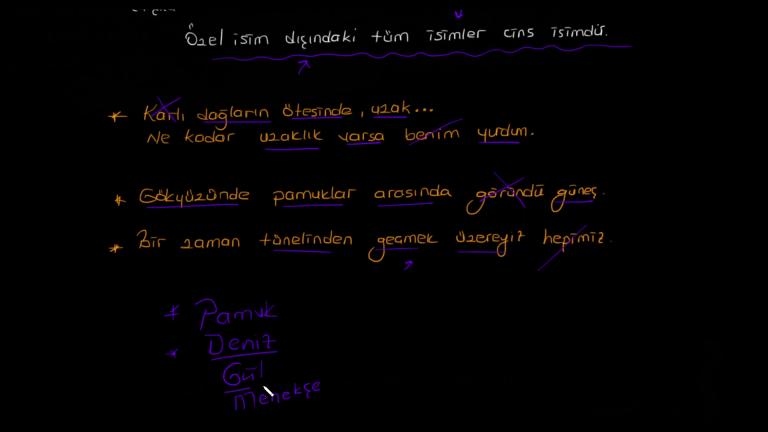 Özel isim dışındaki tüm isimler cins isimdir.
* Karlı dağların ötesinde, uzak...
Ne kadar uzaklık varsa benim yurdum.
* Gökyüzünde pamuklar arasında göründü güneş.
* Bir zaman tünelinden geçmek üzereyiz hepimiz.
* Pamuk
* Deniz
Gül
Menekşe